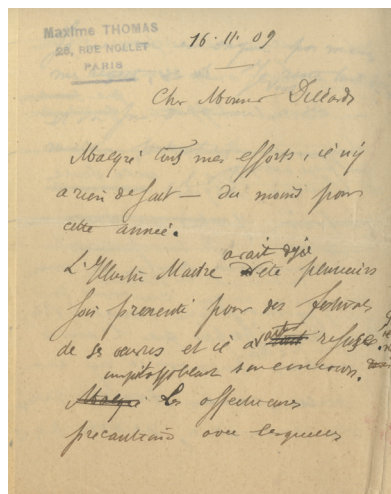 Maxime THOMAS
28, RUE NOLLET
PARIS
16·11·09
Cher Monsieur
Malgré tous mes efforts, il n'y
a rien de fait — du moins pour
cette année.
avait déjà
L'Illustre Maître été plusieurs
fois pressenti pour des festivals
de ses œuvres et il avait refusé
son concours.
Malgré les affectueuses
précautions avec lesquelles